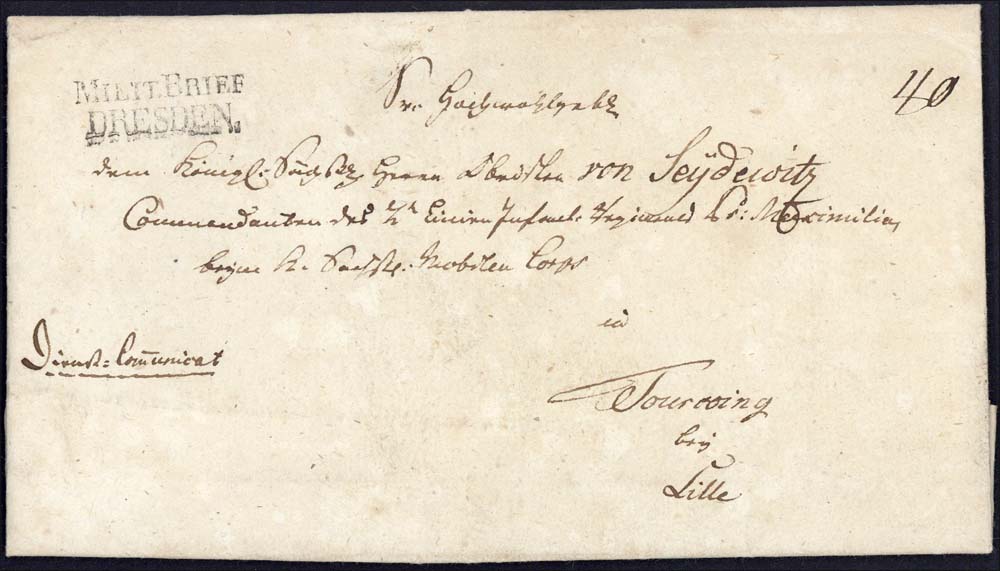 MILIT. BRIEF
DRESDEN.
40
Sr: Hochwohlgeb
dem Königl: Sächß Herrn Obersten von Seÿdewitz
Commandanten des Linien Infant: Regiments Pr: Maximilian
beym K. Sächß. Mobilen Corps
in
Dienst=Communicat
Tourcoing
bey
Lille